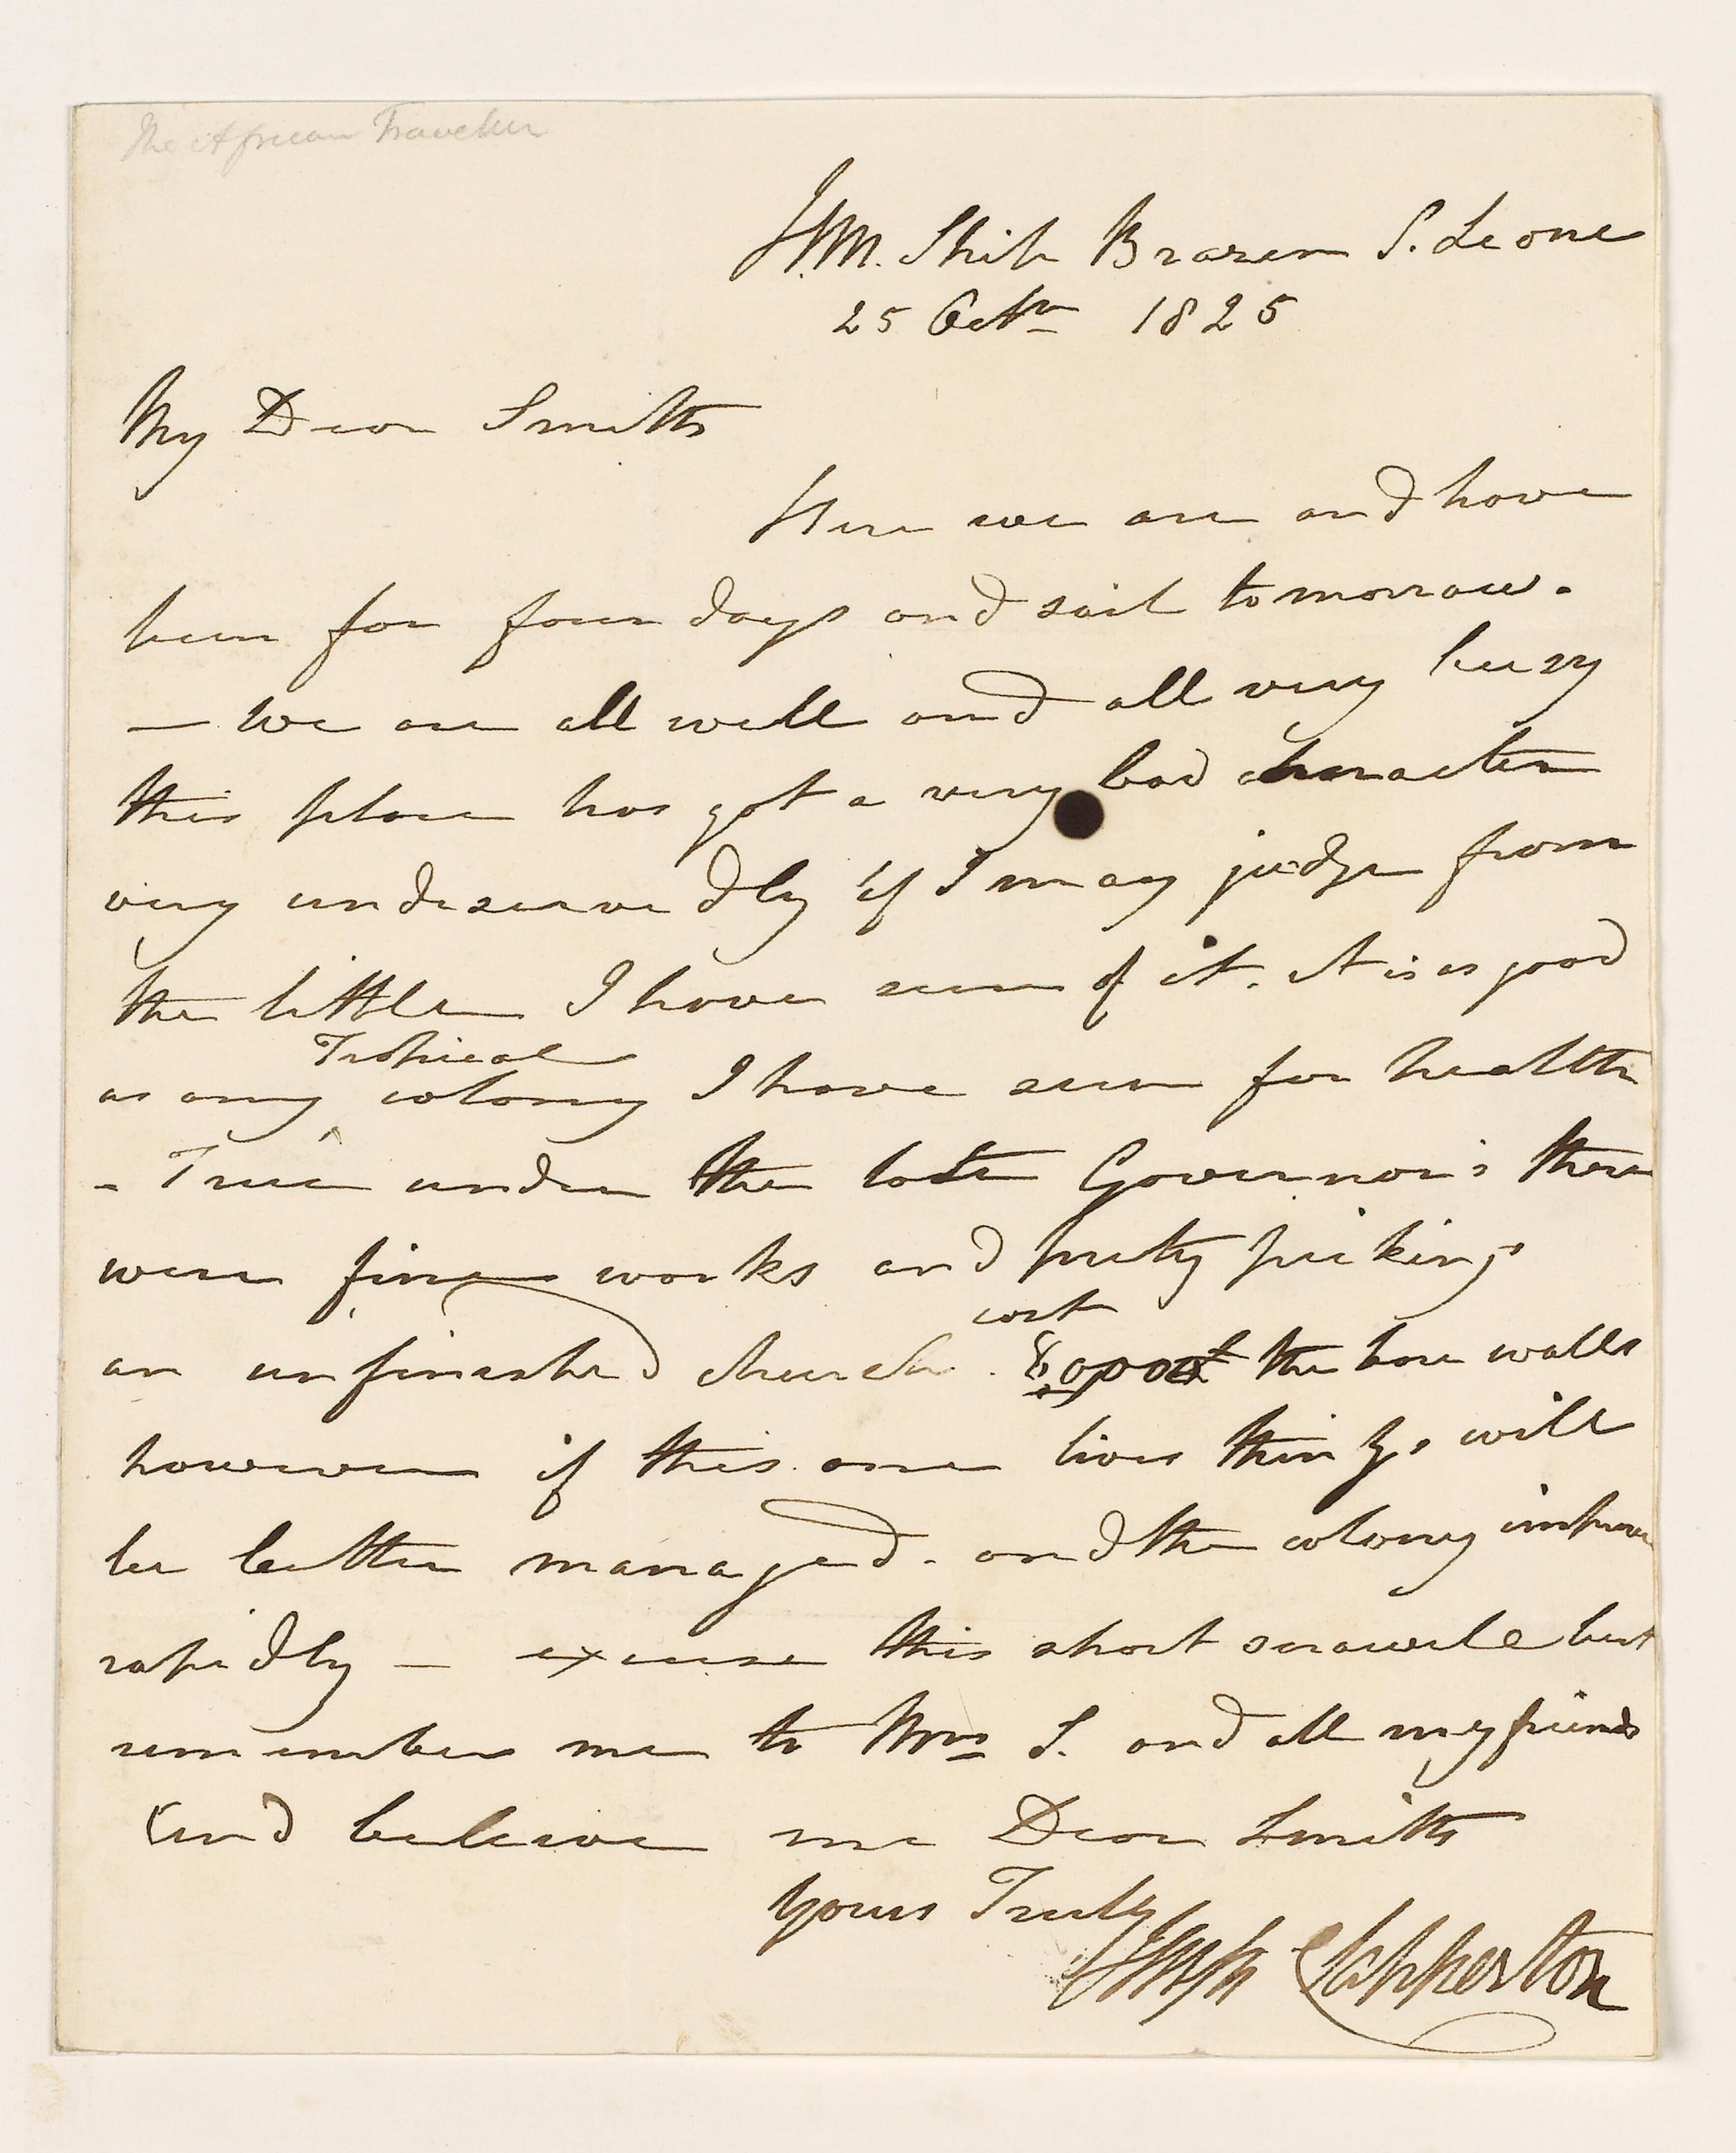 The African Traveller
H.M. Ship Brazen S. Leone
25 Octr 1825
My Dear Smith
Here we are and have
been for four days and sail tomorrow.
— We are all well and all very busy
this place has got a very bad character
very undeservedly if I may judge from
the little I have seen of it. It is as good
Tropical
as any colony I have seen for health
- True under the late Governor's there
were fine works and prety pickings
cost
an unfinished church. the bare walls
however if this one lives things will
be better managed. and the colony improve
rapidly — excuse this short scrawle but
remember me to Mrs S. and all my friends
and beleive me Dear Smith
Yours Truly
Hugh Clapperton